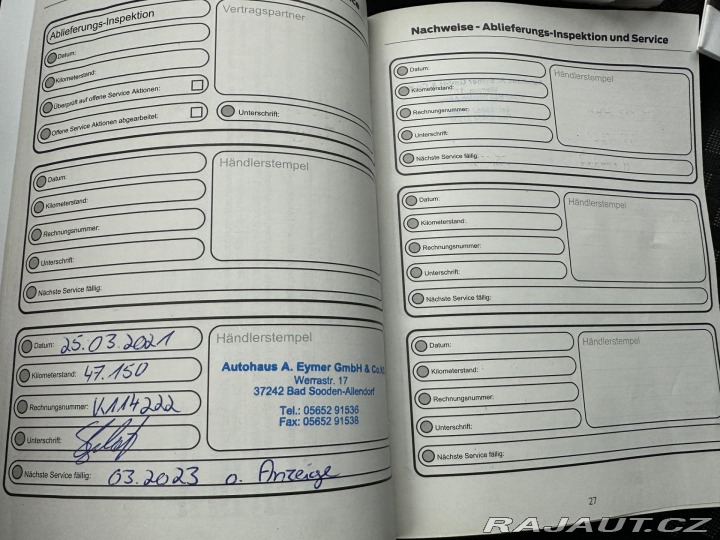 Ablieferungs-Inspektion
Vertragspartner
Datum:
Kilometerstand:
Überprüft auf offene Service Aktionen:
Offene Service Aktionen abgearbeitet:
Unterschrift:
Händlerstempel
Datum:
Kilometerstand:
Rechnungsnummer:
Unterschrift:
Nächste Service fällig:
Händlerstempel
Datum: 25.03.2021
Kilometerstand: 47.150
Rechnungsnummer: K114222
Unterschrift:
Nächste Service fällig: 03.2023 o. Anzeige
Autohaus A. Eymer GmbH & Co.
Werrastr. 17
37242 Bad Sooden-Allendorf
Tel.: 05652 91536
Fax: 05652 91538
Nachweise - Ablieferungs-Inspektion und Service
Datum:
Kilometerstand:
Rechnungsnummer:
Unterschrift:
Nächste Service fällig:
Händlerstempel
Datum:
Kilometerstand:
Rechnungsnummer:
Unterschrift:
Nächste Service fällig:
Händlerstempel
Datum:
Kilometerstand:
Rechnungsnummer:
Unterschrift:
Nächste Service fällig:
Händlerstempel
27
RAJAUT.CZ